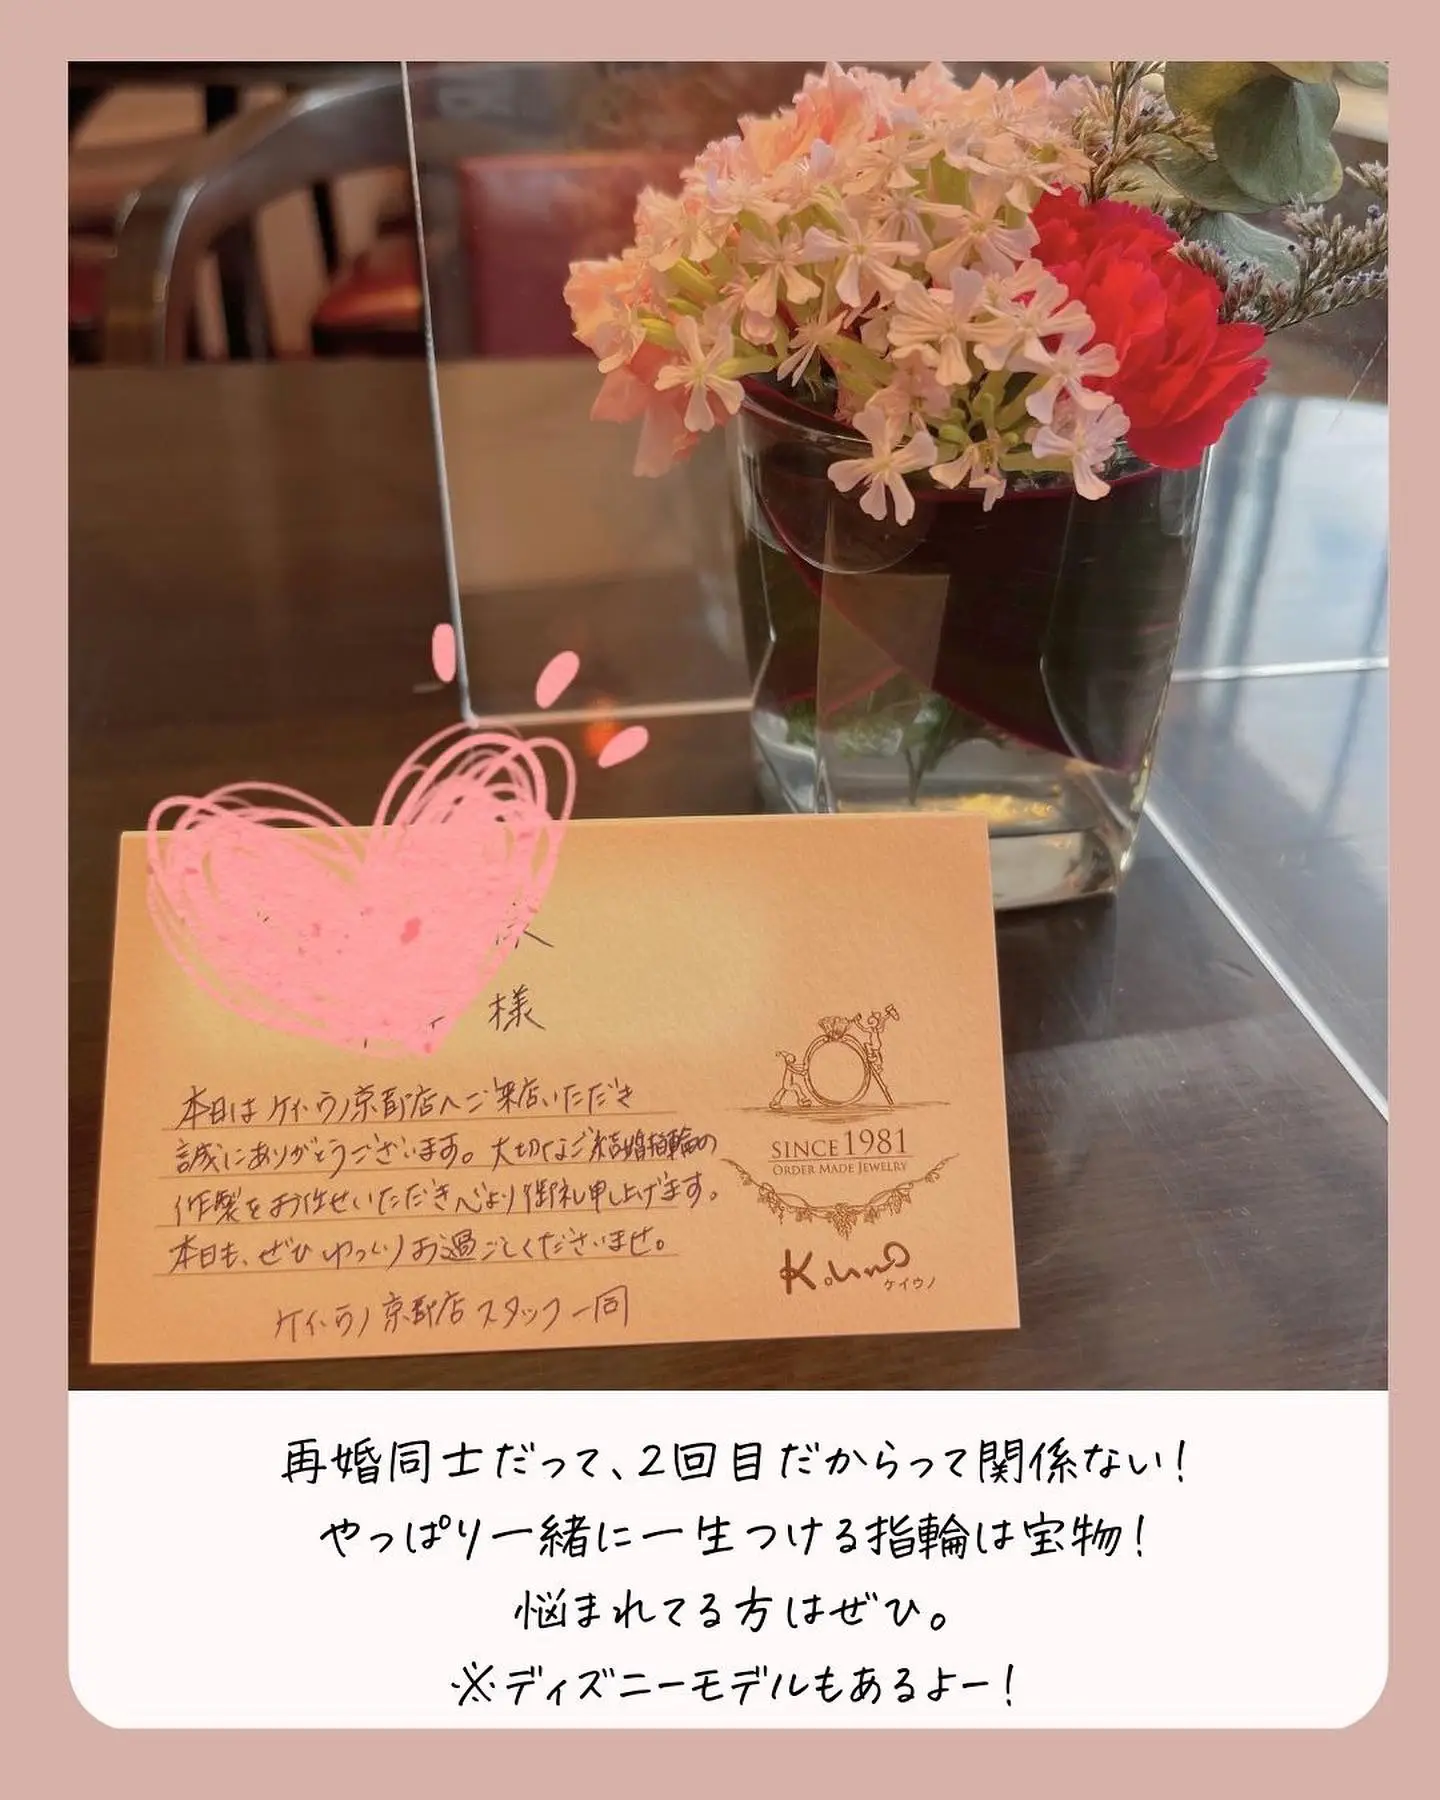 様
様
本日はケイ・ウノ京都店へご来店いただき
誠にありがとうございます。大切なご結婚指輪の
作製をお任せいただき心より御礼申し上げます。
本日も、ぜひゆっくりお過ごしくださいませ。
ケイ・ウノ京都店スタッフ一同
SINCE 1981
ORDER MADE JEWELRY
K.UNO
ケイウノ
再婚同士だって、2回目だからって関係ない！
やっぱり一緒に一生つける指輪は宝物！
悩まれてる方はぜひ。
※ディズニーモデルもあるよー！